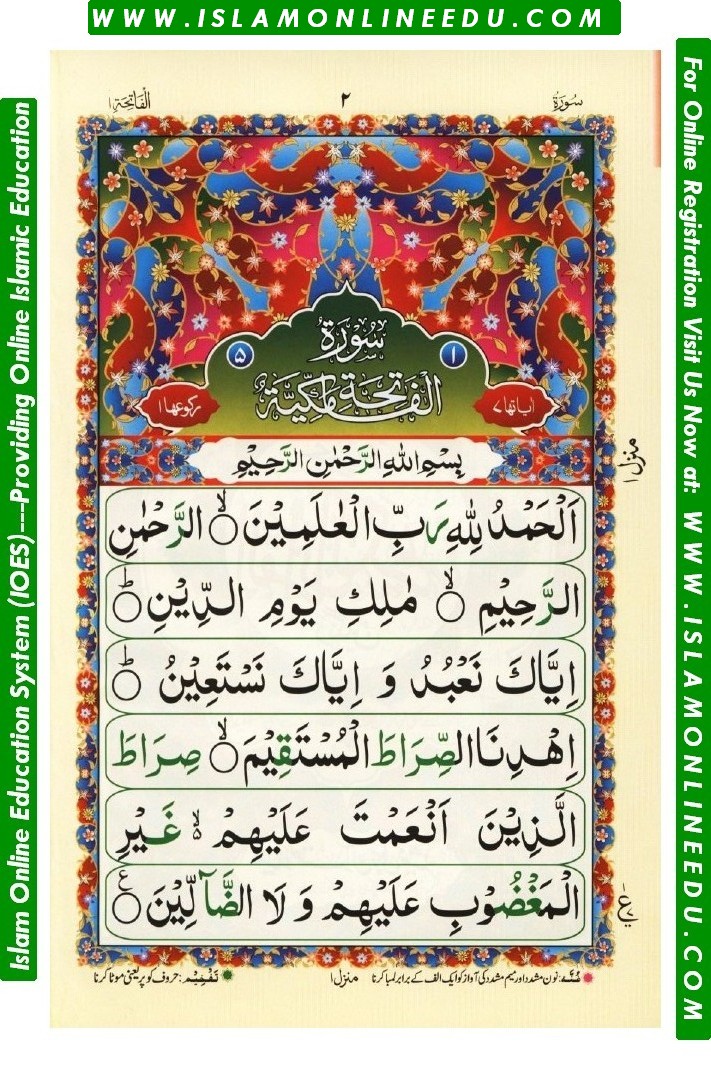 WWW.ISLAMONLINEEDU.COM
الْفَاتِحَة ١
٢
سُورَة
Islam Online Education System (IOES)---Providing Online Islamic Education
For Online Registration Visit Us Now at: WWW.ISLAMONLINEEDU.COM
سُورَةُ
١
٥
الْفَاتِحَةِ مَكِّيَّةٌ
اٰیاتها ٧
رکوعها ١
بِسْمِ اللهِ الرَّحْمٰنِ الرَّحِيْمِ
منزل ١
اَلْحَمْدُ لِلّٰهِ رَبِّ الْعٰلَمِيْنَ ۙ الرَّحْمٰنِ
الرَّحِيْمِ ۙ مٰلِكِ يَوْمِ الدِّيْنِ ؕ
اِيَّاكَ نَعْبُدُ وَ اِيَّاكَ نَسْتَعِيْنُ ؕ
اِهْدِنَا الصِّرَاطَ الْمُسْتَقِيْمَ ۙ صِرَاطَ
الَّذِيْنَ اَنْعَمْتَ عَلَيْهِمْ ۙ۵ غَيْرِ
الْمَغْضُوْبِ عَلَيْهِمْ وَ لَا الضَّآلِّيْنَ ع
غُنَّہ: نون مشدد اور میم مشدد کی آواز کو ایک الف کے برابر لمبا کرنا منزل ١ تَفْخِیْم: حروف کو پُر یعنی موٹا کرنا